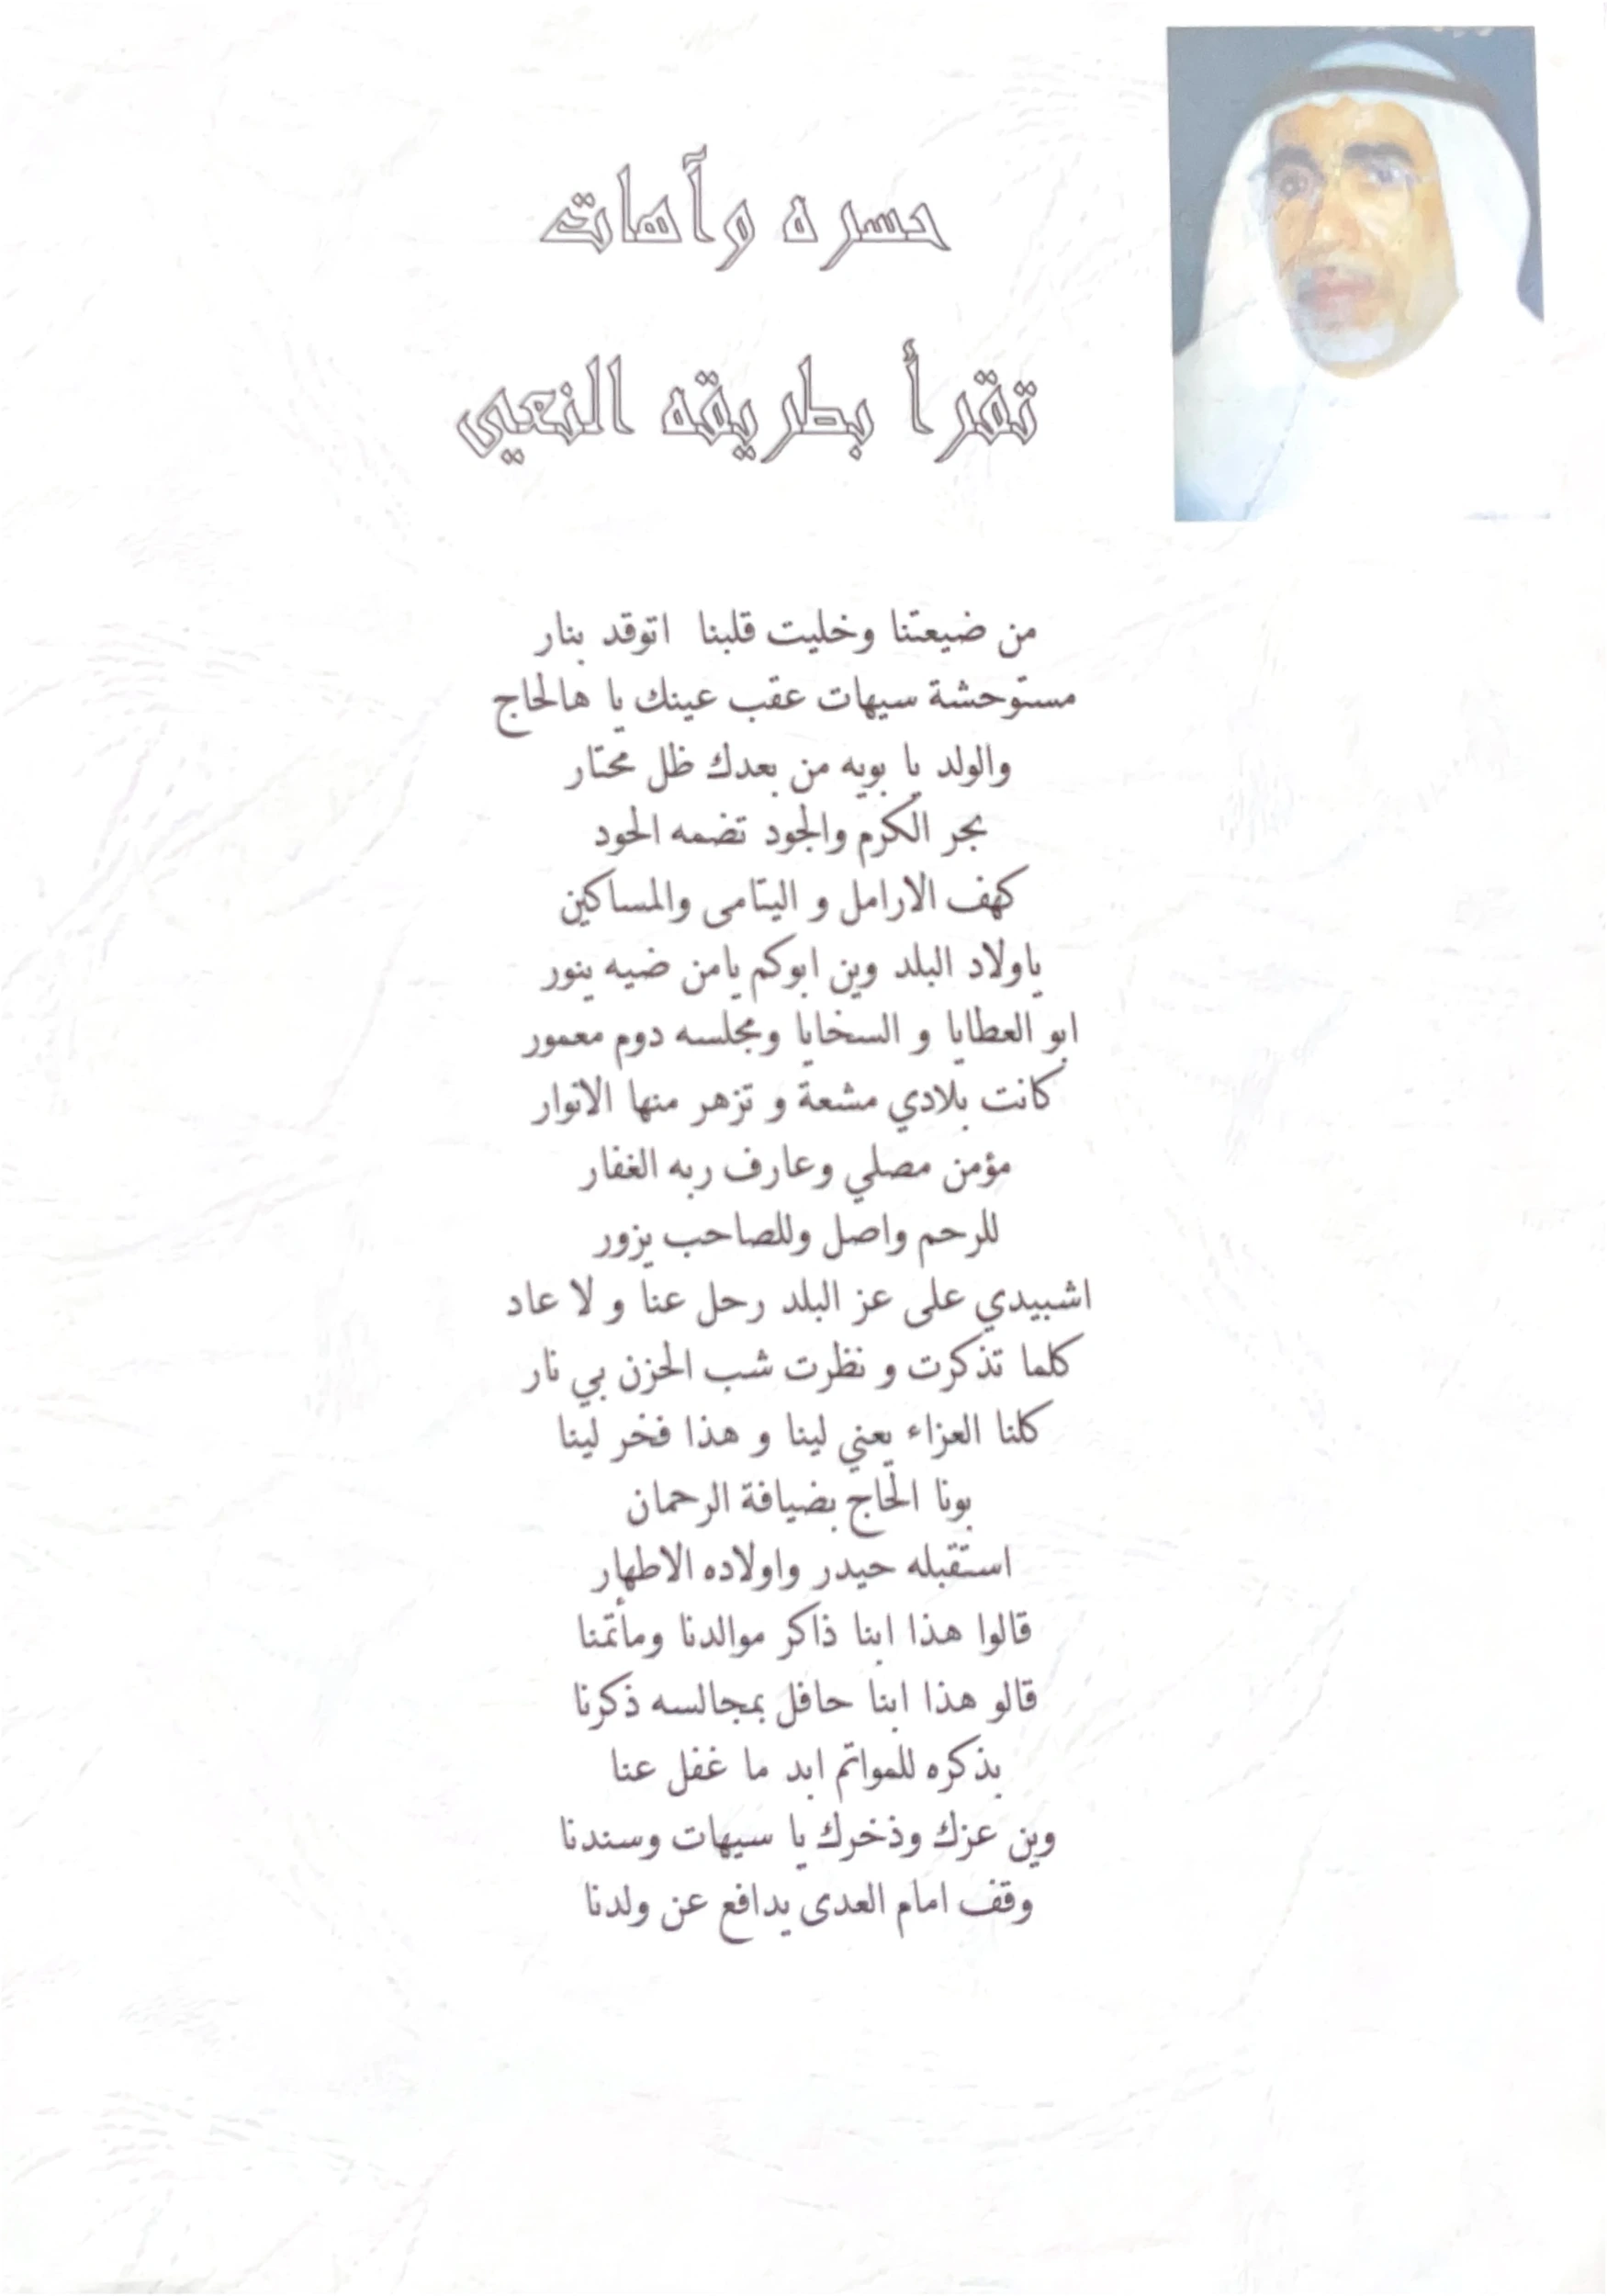 حسره وآهات
تقرأ بطريقه النعي
من ضيعتنا وخليت قلبنا اتوقد بنار
مستوحشة سيهات عقب عينك يا هالحاج
والولد يا بويه من بعدك ظل محتار
بحر الكرم والجود تضمه الحود
كهف الارامل و اليتامى والمساكين
ياولاد البلد وين ابوكم يامن ضيه ينور
ابو العطايا و السخايا ومجلسه دوم معمور
كانت بلادي مشعة و تزهر منها الانوار
مؤمن مصلي وعارف ربه الغفار
للرحم واصل وللصاحب يزور
اشبيدي على عز البلد رحل عنا و لا عاد
كلما تذكرت و نظرت شب الحزن بي نار
كلنا العزاء يعني لينا و هذا فخر لينا
بونا الحاج بضيافة الرحمان
استقبله حيدر واولاده الاطهار
قالوا هذا ابنا ذاكر موالدنا ومأتمنا
قالو هذا ابنا حافل بمجالسه ذكرنا
بذكره للمواتم ابد ما غفل عنا
وين عزك وذخرك يا سيهات وسندنا
وقف امام العدى يدافع عن ولدنا